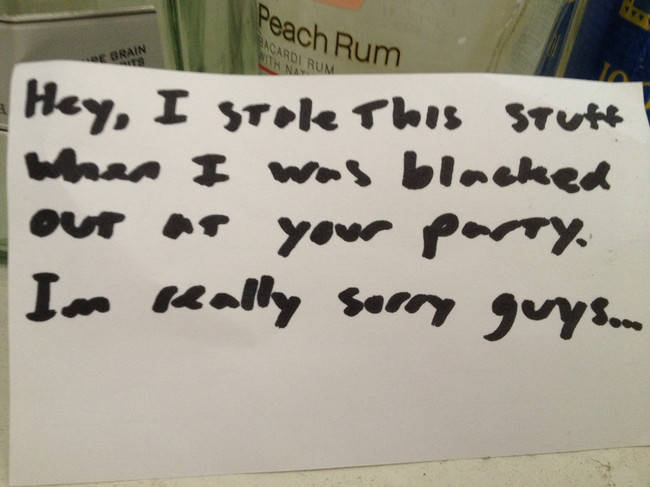 Peach Rum
BACARDI RUM
WITH NAT
GRAIN
Hey, I stole This stuff
when I was blacked
out at your party.
Im really sorry guys...